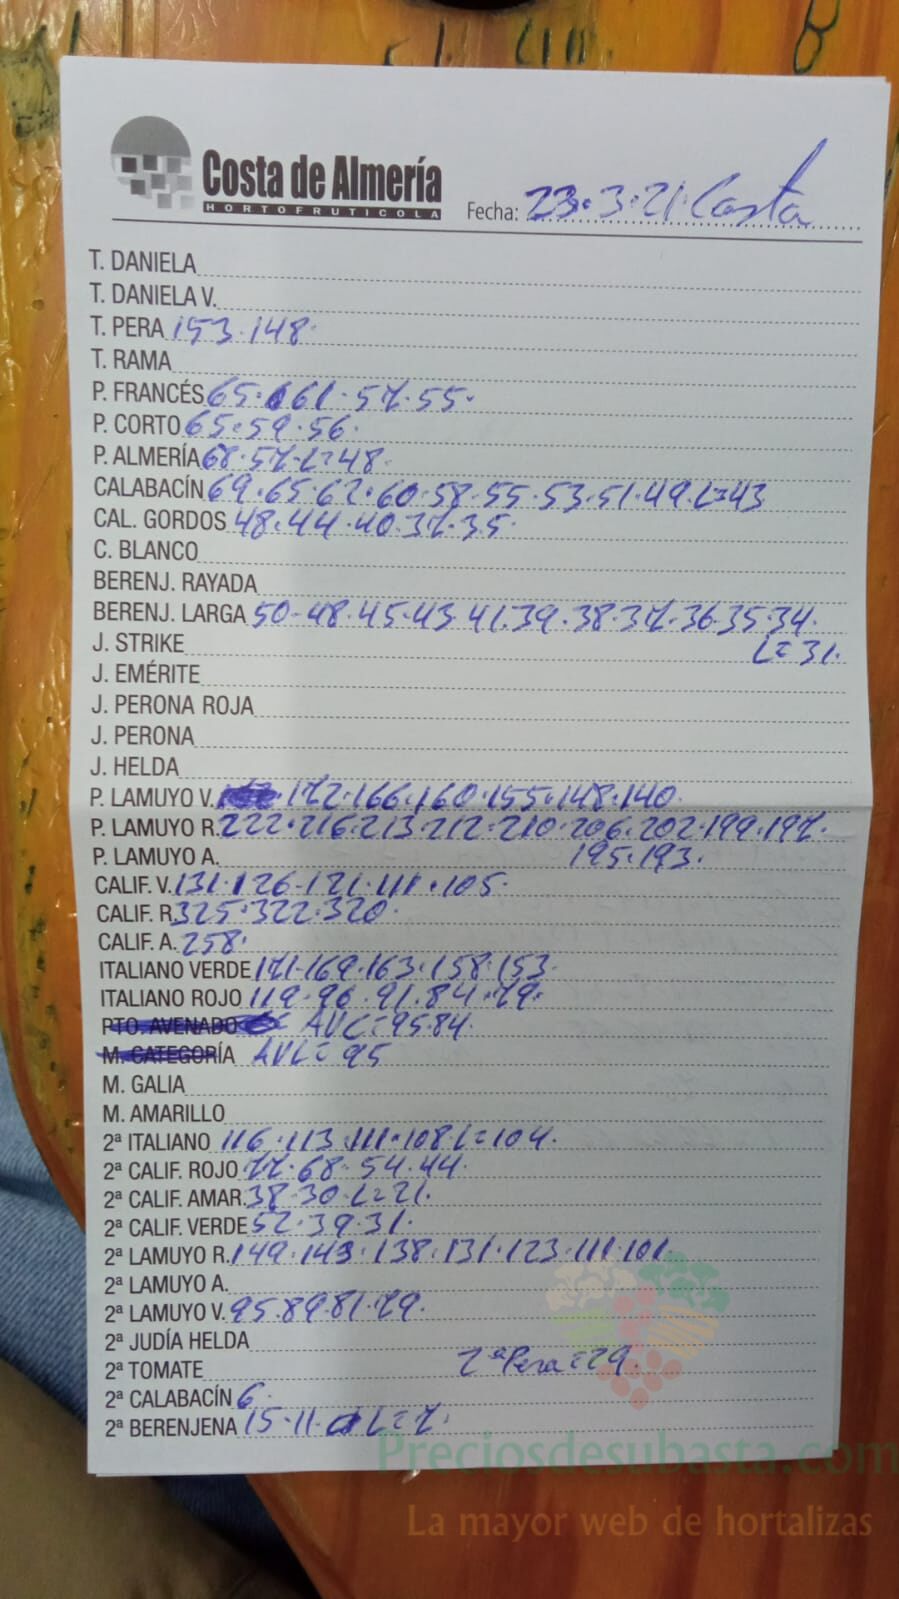 Costa de Almería
HORTOFRUTICOLA
Fecha: 23.3.21. Costa
T. DANIELA
T. DANIELA V.
T. PERA 153.148.
T. RAMA
P. FRANCÉS 65.61.57.55.
P. CORTO 65.59.56.
P. ALMERÍA 68.57.L=48.
CALABACÍN 69.65.62.60.58.55.53.51.49.L=43
CAL. GORDOS 48.44.40.37.35.
C. BLANCO
BERENJ. RAYADA
BERENJ. LARGA 50-48.45.43.41.39.38.37.36.35.34.
J. STRIKE L=31.
J. EMÉRITE
J. PERONA ROJA
J. PERONA
J. HELDA
P. LAMUYO V. 172.166.160.155.148.140.
P. LAMUYO R. 222.216.213.212.210.206.202.199.197.
P. LAMUYO A. 195.193.
CALIF. V. 131.126-121.111.105.
CALIF. R. 325.322.320.
CALIF. A. 258.
ITALIANO VERDE 171-169.163.158.153.
ITALIANO ROJO 119.96.91.84.79.
PTO. AVENADO AVC=95.84.
M. CATEGORÍA AVL=95
M. GALIA
M. AMARILLO
2ª ITALIANO 116.113.111.108.L=104.
2ª CALIF. ROJO 77.68.54.44.
2ª CALIF. AMAR. 38.30.L=21.
2ª CALIF. VERDE 52.39.31.
2ª LAMUYO R. 149.143.138.131.123.111.101.
2ª LAMUYO A.
2ª LAMUYO V. 95.89.81.79.
2ª JUDÍA HELDA
2ª TOMATE 2ª Pera=29.
2ª CALABACÍN 6.
2ª BERENJENA 15.11. L=7.
Preciosdesubasta.com
La mayor web de hortalizas